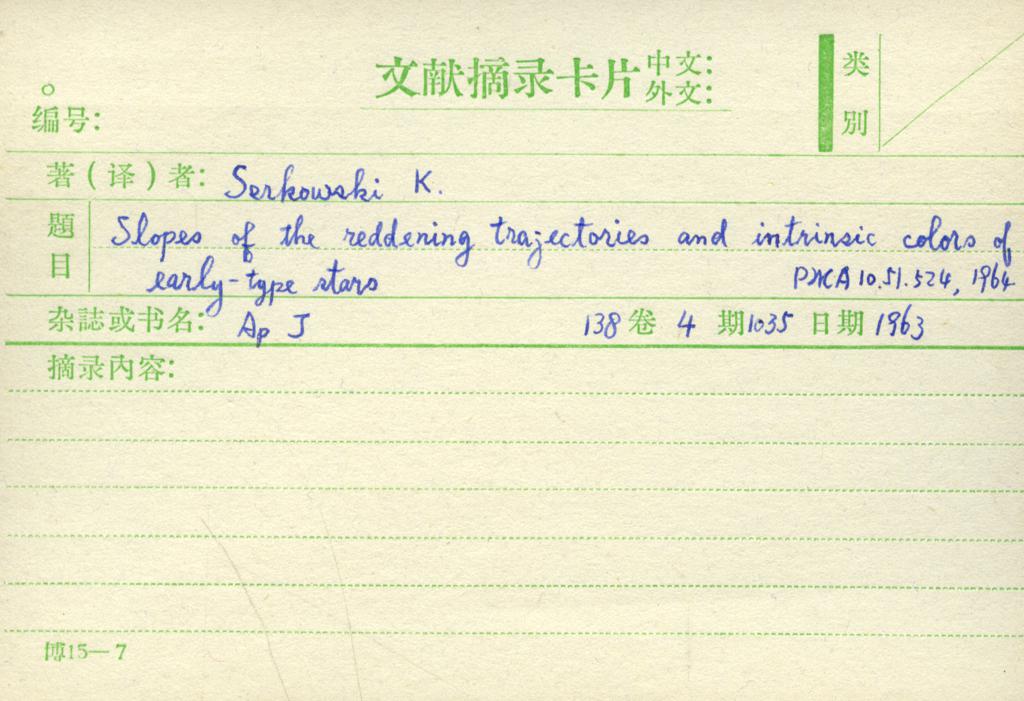 文献摘录卡片 中文:
外文:
类
別
编号:
著(译)者: Serkowski K.
題目 Slopes of the reddening trajectories and intrinsic colors of
early-type stars РЖА 10.51.524, 1964
杂誌或书名: Ap J 138 卷 4 期 1035 日期 1963
摘录內容:
博15—7